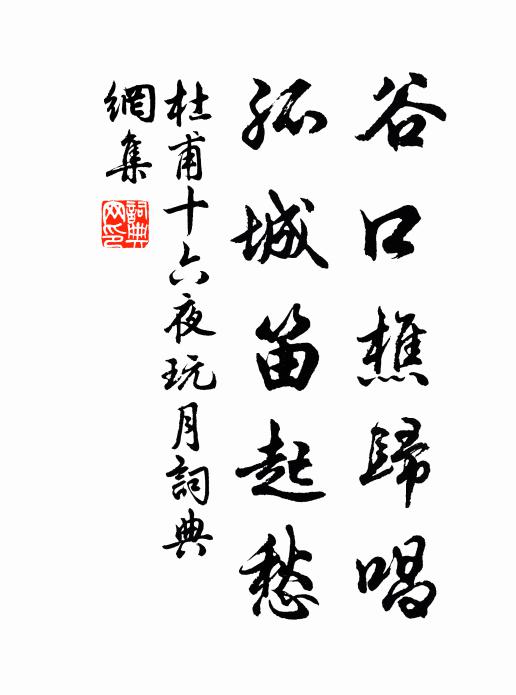 谷口樵歸唱
孤城笛起愁
杜甫十六夜玩月詞典
網集
詞典
网印